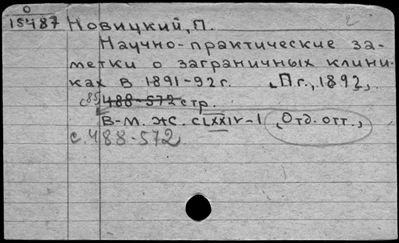 О
15487 Новицкий, П.
Научно-практические за-
метки о заграничных клини-
ках в 1891-92 г. Пг., 1892,
с85 488-572 стр.
В-М. Ж. CLXXIV-1, Отд. отт.,
с. 488-572